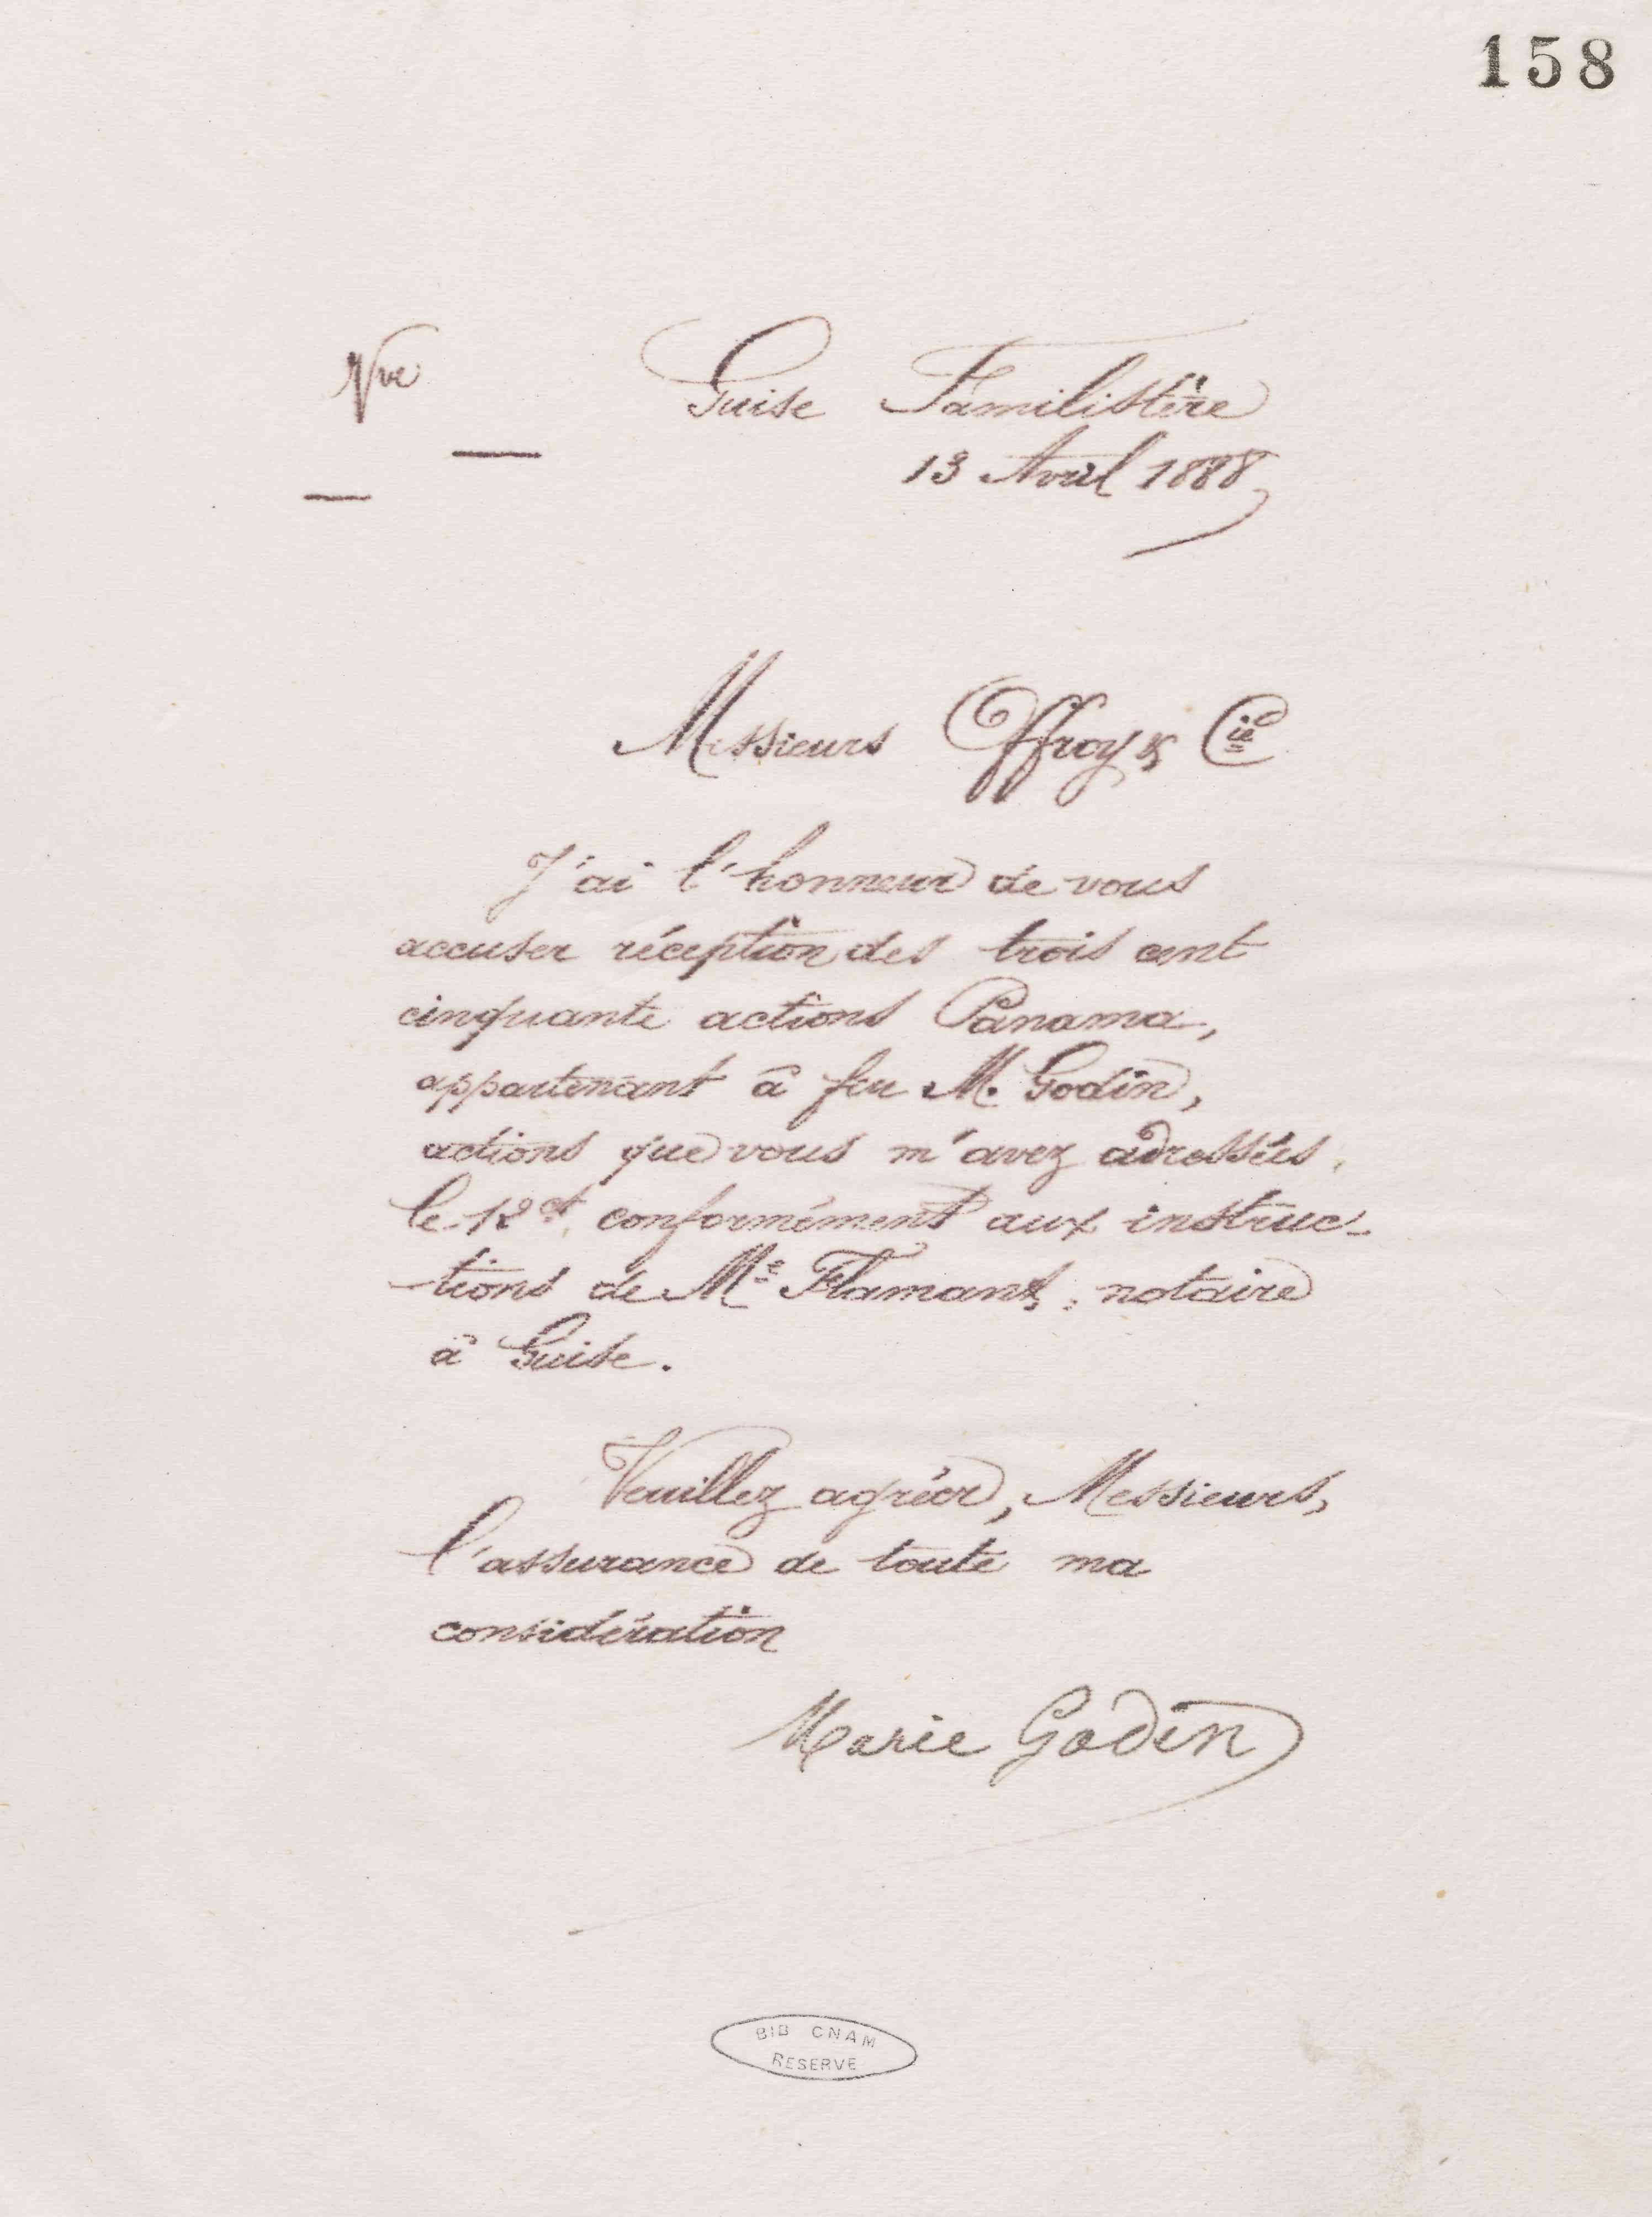 158
Nve
Guise Familistère
13 Avril 1888
Messieurs Offroy & Cie
J'ai l'honneur de vous
accuser réception des trois cent
cinquante actions Panama,
appartenant à feu M. Godin,
actions que vous m'avez adressées,
le 12 ct, conformément aux instruc-
tions de Me Flamant, notaire
à Guise.
Veuillez agréer, Messieurs,
l'assurance de toute ma
considération
Marie Godin
BIB CNAM
RESERVE